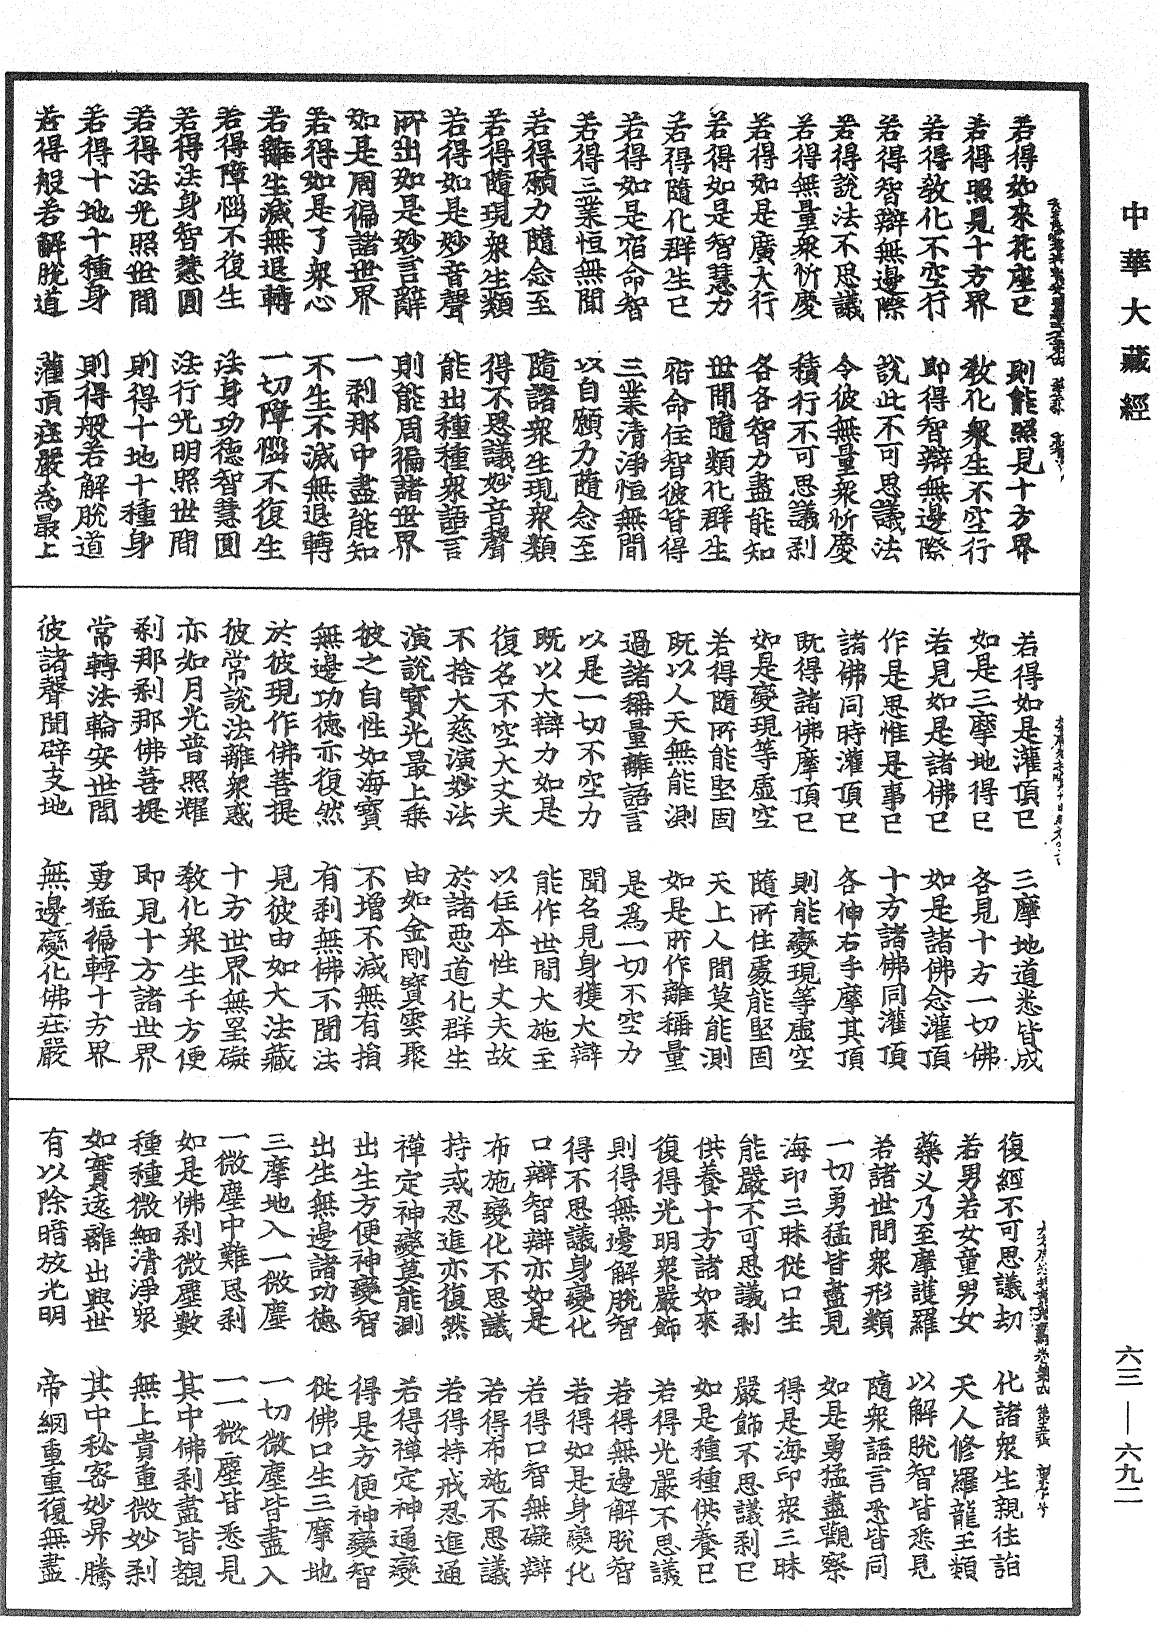 中華大藏經
若得如來花座已　則能照見十方界
若得照見十方界　教化衆生不空行
若得教化不空行　即得智辯無邊際
若得智辯無邊際　說此不可思議法
若得說法不思議　令彼無量衆忻慶
若得無量衆忻慶　積行不可思議刹
若得如是廣大行　各各智力盡能知
若得如是智慧力　世間隨類化群生
若得隨化群生已　宿命住智彼皆得
若得如是宿命智　三業清淨恒無間
若得三業恒無間　以自願力隨念至
若得願力隨念至　隨諸衆生現衆類
若得隨現衆生類　得不思議妙音聲
若得如是妙音聲　能出種種衆語言
所出如是妙言辭　則能周徧諸世界
如是周徧諸世界　一刹那中盡能知
若得如是了衆心　不生不滅無退轉
若離生滅無退轉　一切障惱不復生
若得障惱不復生　法身功德智慧圓
若得法身智慧圓　法行光明照世間
若得法光照世間　則得十地十種身
若得十地十種身　則得般若解脫道
若得般若解脫道　灌頂莊嚴爲最上
若得如是灌頂已　三摩地道悉皆成
如是三摩地得已　各見十方一切佛
若見如是諸佛已　如是諸佛念灌頂
作是思惟是事已　十方諸佛同灌頂
諸佛同時灌頂已　各伸右手摩其頂
既得諸佛摩頂已　則能變現等虛空
如是變現等虛空　隨所住處能堅固
若得隨所能堅固　天上人間莫能測
既以人天無能測　如是所作離稱量
過諸稱量離語言　是爲一切不空力
以是一切不空力　聞名見身獲大辯
既以大辯力如是　能作世間大施主
復名不空大丈夫　以住本性丈夫故
不捨大慈演妙法　於諸惡道化群生
演說寶光最上乘　由如金剛寶雲聚
彼之自性如海寶　不增不減無有損
無邊功德亦復然　有刹無佛不聞法
於彼現作佛菩提　見彼由如大法藏
彼常說法離衆惑　十方世界無罣礙
亦如月光普照耀　教化衆生千方便
刹那刹那佛菩提　即見十方諸世界
常轉法輪安世間　勇猛徧轉十方界
彼諸聲聞辟支地　無邊變化佛莊嚴
復經不可思議劫　化諸衆生親往詣
若男若女童男女　天人修羅龍王類
藥叉乃至摩護羅　以解脫智皆悉見
若諸世間衆形類　隨衆語言悉皆同
一切勇猛皆盡見　如是勇猛盡觀察
海印三昧從口生　得是海印衆三昧
能嚴不可思議刹　嚴飾不思議刹已
供養十方諸如來　如是種種供養已
復得光明衆嚴飾　若得光嚴不思議
則得無邊解脫智　若得無邊解脫智
得不思議身變化　若得如是身變化
口辯智辯亦如是　若得口智無礙辯
布施變化不思議　若得布施不思議
持戒忍進亦復然　若得持戒忍進通
禪定神變莫能測　若得禪定神通變
出生方便神變智　得是方便神變智
出生無邊諸功德　從佛口生三摩地
三摩地入一微塵　一切微塵皆盡入
一微塵中難思刹　一一微塵皆悉見
如是佛刹微塵數　其中佛刹盡皆觀
種種微細清淨衆　無上貴重微妙刹
如實遠離出興世　其中秘密妙昇騰
有以除暗放光明　帝網重重復無盡
六三—六九二